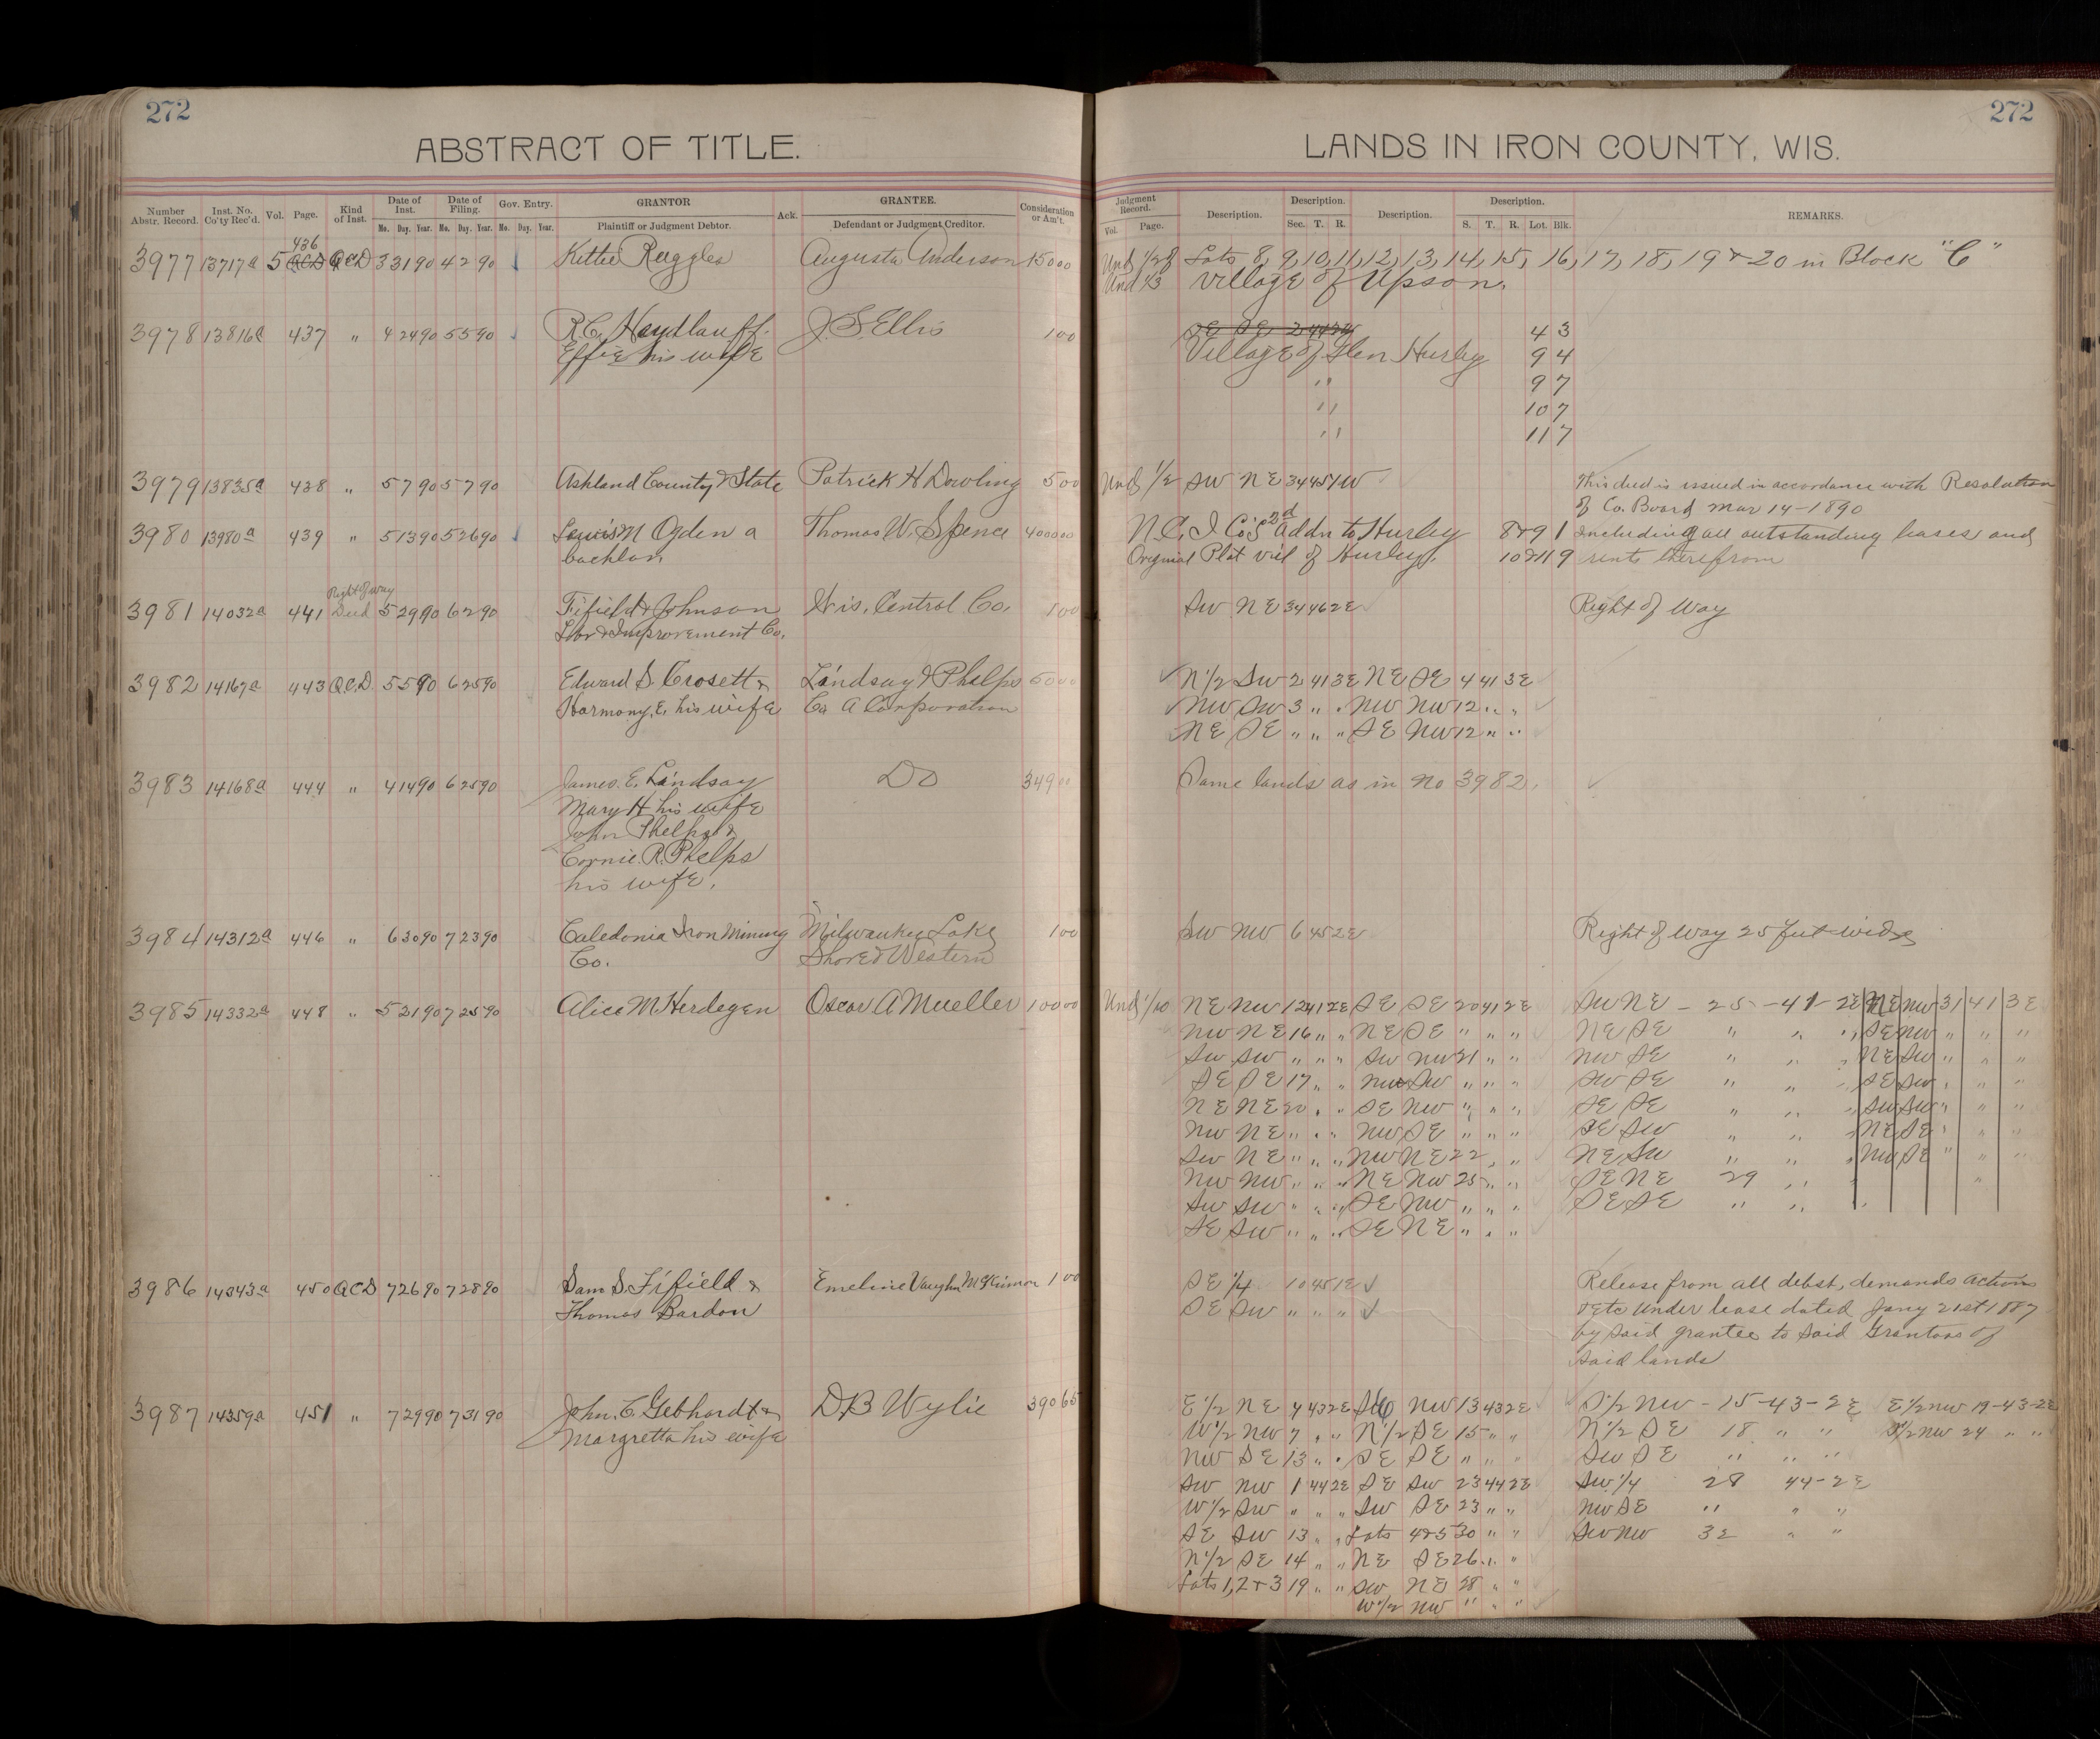 272
272
ABSTRACT OF TITLE.
LANDS IN IRON COUNTY, WIS.
Number Abstr. Record. Inst. No. Co'ty Rec'd. Vol. Page. Kind of Inst. Date of Inst. Mo. Day. Year. Date of Filing. Mo. Day. Year. Gov. Entry. Mo. Day. Year. GRANTOR Plaintiff or Judgment Debtor. Ack. GRANTEE. Defendant or Judgment Creditor. Consideration or Am't.
Judgment Record. Vol. Page. Description. Description. Sec. T. R. Description. Description. S. T. R. Lot. Blk. REMARKS.
436
3977 13717a 5 QCD QCD 3 31 90 4 2 90 Kittie Ruggles Augusta Anderson 150 00 Und 1/2 of Lots 8, 9, 10, 11, 12, 13, 14, 15, 16, 17, 18, 19 & 20 in Block "C"
Und 1/3 Village of Upson.
3978 13816a 437 " 4 24 90 5 5 90 R.C. Haudlauff. J. S. Ellis 1 00 SE SE 4 3
Effie his wife Village of Glen Hurley 9 4
" 9 7
" 10 7
" 11 7
3979 13835a 438 " 5 7 90 5 7 90 Ashland County & State Patrick H Dowling 5 00 Und 1/2 SW NE 34 45 1W This deed is issued in accordance with Resolution
of Co. Board Mar 14-1890
3980 13980a 439 " 5 13 90 5 26 90 Lewis N Ogden a Thomas W. Spence 4000 00 N.C.I Co's 2d Addn to Hurley 8&9 1 including all outstanding leases and
bachlor, Original Plat vil of Hurley. 10&11 9 rents therefrom
Right of way
3981 14032a 441 Deed 5 29 90 6 2 90 Fifield & Johnson Wis. Central Co. 1 00 SW NE 34 46 2E Right of Way
Lbr & Improvement Co.
3982 14167a 443 QCD 5 5 90 6 25 90 Edward S. Crosett & Lindsay & Phelps 50 00 N1/2 SW 2 41 3E NE SE 4 41 3E
Harmony. E. his wife Co. A Corporation NW SW 3 " " NW NW 12 " "
NE SE " " " SE NW 12 " "
3983 14168a 444 " 4 14 90 6 25 90 James. E. Lindsay Do 349 00 Same lands as in No 3982.
Mary H his wife
John Phelps &
Cornie. R. Phelps
his wife.
3984 14312a 446 " 6 30 90 7 23 90 Caledonia Iron Mining Milwaukee Lake 1 00 SW NW 6 45 2E Right of Way 25 feet wide
Co. Shore & Western
3985 14332a 448 " 5 21 90 7 25 90 Alice M. Herdegen Oscar A Mueller 100 00 Und 1/10 NE NW 12 41 2E SE SE 20 41 2E SW NE - 25 - 41 - 2E NE NW 31 41 3E
NW NE 16 " " NE SE " " " NE SE " " " SE NW " " "
SW SW " " " SW NW 21 " " NW SE " " " NE SW " " "
SE SE 17 " " NW SW " " " SW SE " " " SE SW " " "
NE NE 20 " " SE NW " " " SE SE " " " SW SW " " "
NW NE " " " NW SE " " " SE SW " " " NE SE " " "
SW NE " " " NW NE 22 " " NE SW " " " NW SE " " "
NW NW " " " NE NW 25 " " SE NE 29 " "
SW SW " " " SE NW " " " SE SE " " "
SE SW " " " SE NE " " "
3986 14343a 450 QCD 7 26 90 7 28 90 Sam S. Fifield & Emeline Vaughn McKinnon 1 00 SE 1/4 10 45 1E Release from all debst, demands actions
Thomas Bardon SE SW " " " & etc under lease dated Jany 21st 1887
by said grantee to said Grantors of
said lands
3987 14359a 451 " 7 29 90 7 31 90 John. C. Gebhardt & D B Wylie 390 65 E1/2 NE 4 43 2E NW 13 43 2E S1/2 NW - 15 - 43 - 2E E1/2 NW 19 - 43 - 2E
Margretta his wife W1/2 NW 7 " " N1/2 SE 15 " " N1/2 SE 18 " " S1/2 NW 24 " "
NW SE 13 " " SE SE " " " SW SE " " "
SW NW 1 44 2E SE SW 23 44 2E SW 1/4 28 44 - 2E
W1/2 SW " " " SW SE 23 " " NW SE " " "
SE SW 13 " " Lots 4&5 30 " " SW NW 32 " "
N1/2 SE 14 " " NE SE 26 " "
Lots 1, 2 & 3 19 " " SW NE 28 " "
W1/2 NW " " "